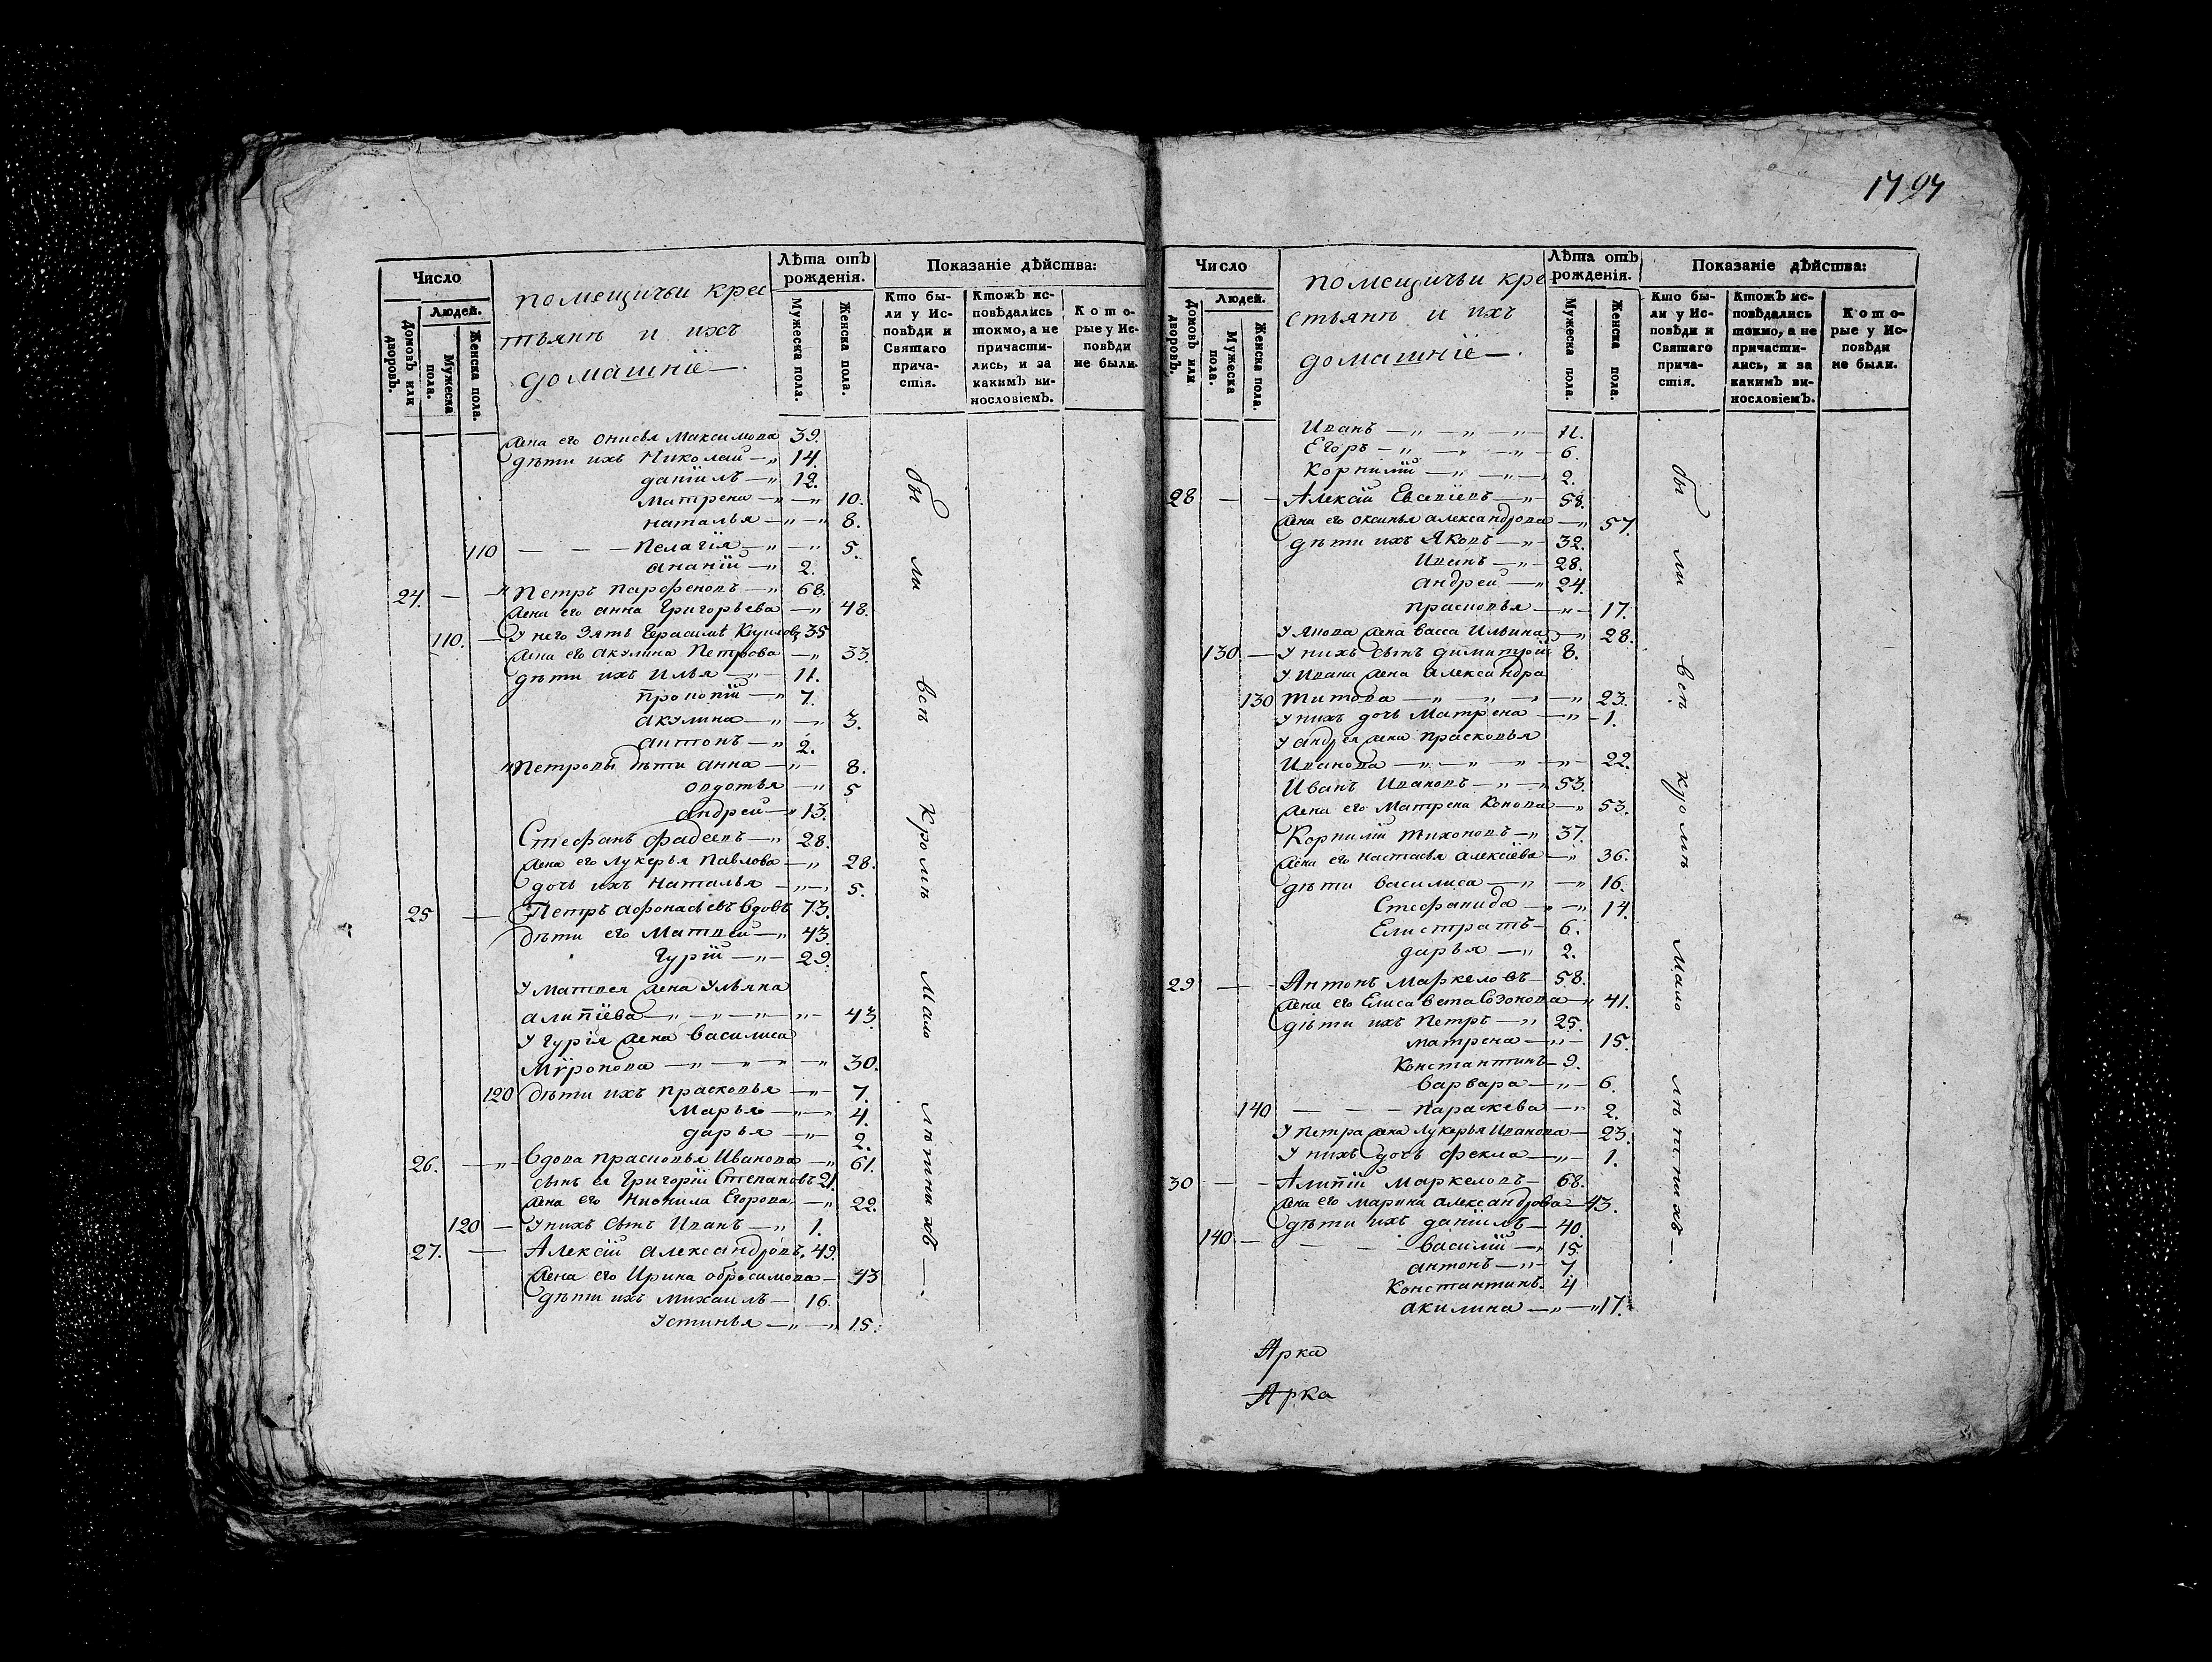 1797
Число
Людей.
Домовъ или дворовъ.
Мужеска пола.
Женска пола.
помещичьи крес
тьянѣ и ихъ
домашнїе —.
Лѣта отъ рожденія.
Мужеска пола.
Женска пола.
Показаніе дѣйства:
Кто бы-
ли у Ис-
повѣди и
Святаго
прича-
стія.
Ктожъ ис-
повѣдались
токмо, а не
причасти-
лись, и за
какимъ ви-
нословіемъ.
Кото-
рые у Ис-
повѣди
не были.
жена его онисья Максимова 39.
дѣти ихъ Николай —„ 14.
данїилъ —„ 12.
матрена —„ —„ 10.
наталья —„ —„ 8.
110 — — — Пелагїя —„ —„ 5.
ананїй —„ 2.
24. — —„ Петръ парфеновъ —„ 68.
жена его анна Григорьева —„ 48.
110. — У него Зять Герасимъ 35
жена его акулина Петрова —„ 33.
дѣти ихъ Илья —„— 11.
прокопїй —„ 7.
акулина —„ —„ 3.
антонъ —„ 2.
Петровы дѣти анна —„— 8.
овдотья —„ 5
андрей —„ 13.
Стефанъ фадеевъ —„ 28.
жена его лукерья павлова —„ 28.
дочь ихъ Наталья —„—„ 5.
25 — Петръ афонасьевъ вдовъ 73.
дѣти его Матвей —„ 43.
Гурїй —„— 29.
У матвея жена Ульяна
алипїева —„ —„ —„ —„— 43
У Гурїя жена василиса
Мѵронова —„ —„ —„ —„ 30.
120 дѣти ихъ прасковья —„— 7.
марья —„—„ 4.
дарья —„— 2.
26. —„— Вдова прасковья Иванова —„ 61.
сынъ ея Григорїй Степановъ 21.
жена его Ненила Егорова —„ 22.
120 — У нихъ сынъ Иванъ —„ 1.
27. — Алексїй александровъ. 49.
жена его Ирина обросимова — 43
дѣти ихъ михаилъ — 16.
Устинья —„ —„ 15.
были всѣ Кромѣ Мало лѣтнихъ —.
Число
Людей.
Домовъ или дворовъ.
Мужеска пола.
Женска пола.
помещичьи кре
стьянѣ и ихъ
домашнїе —.
Лѣта отъ рожденія.
Мужеска пола.
Женска пола.
Показаніе дѣйства:
Кто бы-
ли у Ис-
повѣди и
Святаго
прича-
стія.
Ктожъ ис-
повѣдались
токмо, а не
причасти-
лись, и за
какимъ ви-
нословіемъ.
Кото-
рые у Ис-
повѣди
не были.
Иванъ —„ —„ —„— 11.
Егоръ —„ —„ —„— 6.
Корнилїй —„ —„— 2.
28 — — Алексїй Евсевїевъ —„— 58.
жена его оксинья александрова —„ 57.
дѣти ихъ Яковъ —„— 32.
Иванъ —„— 28.
андрей —„ 24.
прасковья —„— 17.
У якова жена васса Ильина —„ 28.
130. — У нихъ сынъ димитрїй 8.
У Ивана жена александра
130 титова —„ —„ —„ —„ 23.
У нихъ дочь Матрена —„— 1.
У андрея жена прасковья
Иванова —„— —„ —„ —„— 22.
Иванъ Ивановъ —„ —„ 53.
жена его Матрена Конова —„ 53.
Корнилїй тихоновъ —„ 37.
жена его настасья алексїева —„ 36.
дѣти василиса —„ —„ 16.
Стефанида —„ —„ 14.
Елистратъ — 6.
дарья —„ 2.
29 — — Антонъ Маркеловъ — 58.
жена его Елисавета Созонова —„ 41.
дѣти ихъ Петръ —„ 25.
матрена —„— 15.
Константинъ — 9.
варвара —„— 6.
140 — — — параскева —„ 2.
У петра жена лукерья Иванова — 23.
У нихъ дочь фекла —„— 1.
30 — — Алипїй Маркеловъ — 68.
жена его марина александрова — 43.
дѣти ихъ данїилъ — 40.
140 — — — — василїй —„ 15.
антонъ —„— 7
Константинъ. 4
акилина —„ —„ 17.
были всѣ Кромѣ Мало лѣтнихъ —.
Арка
Арка